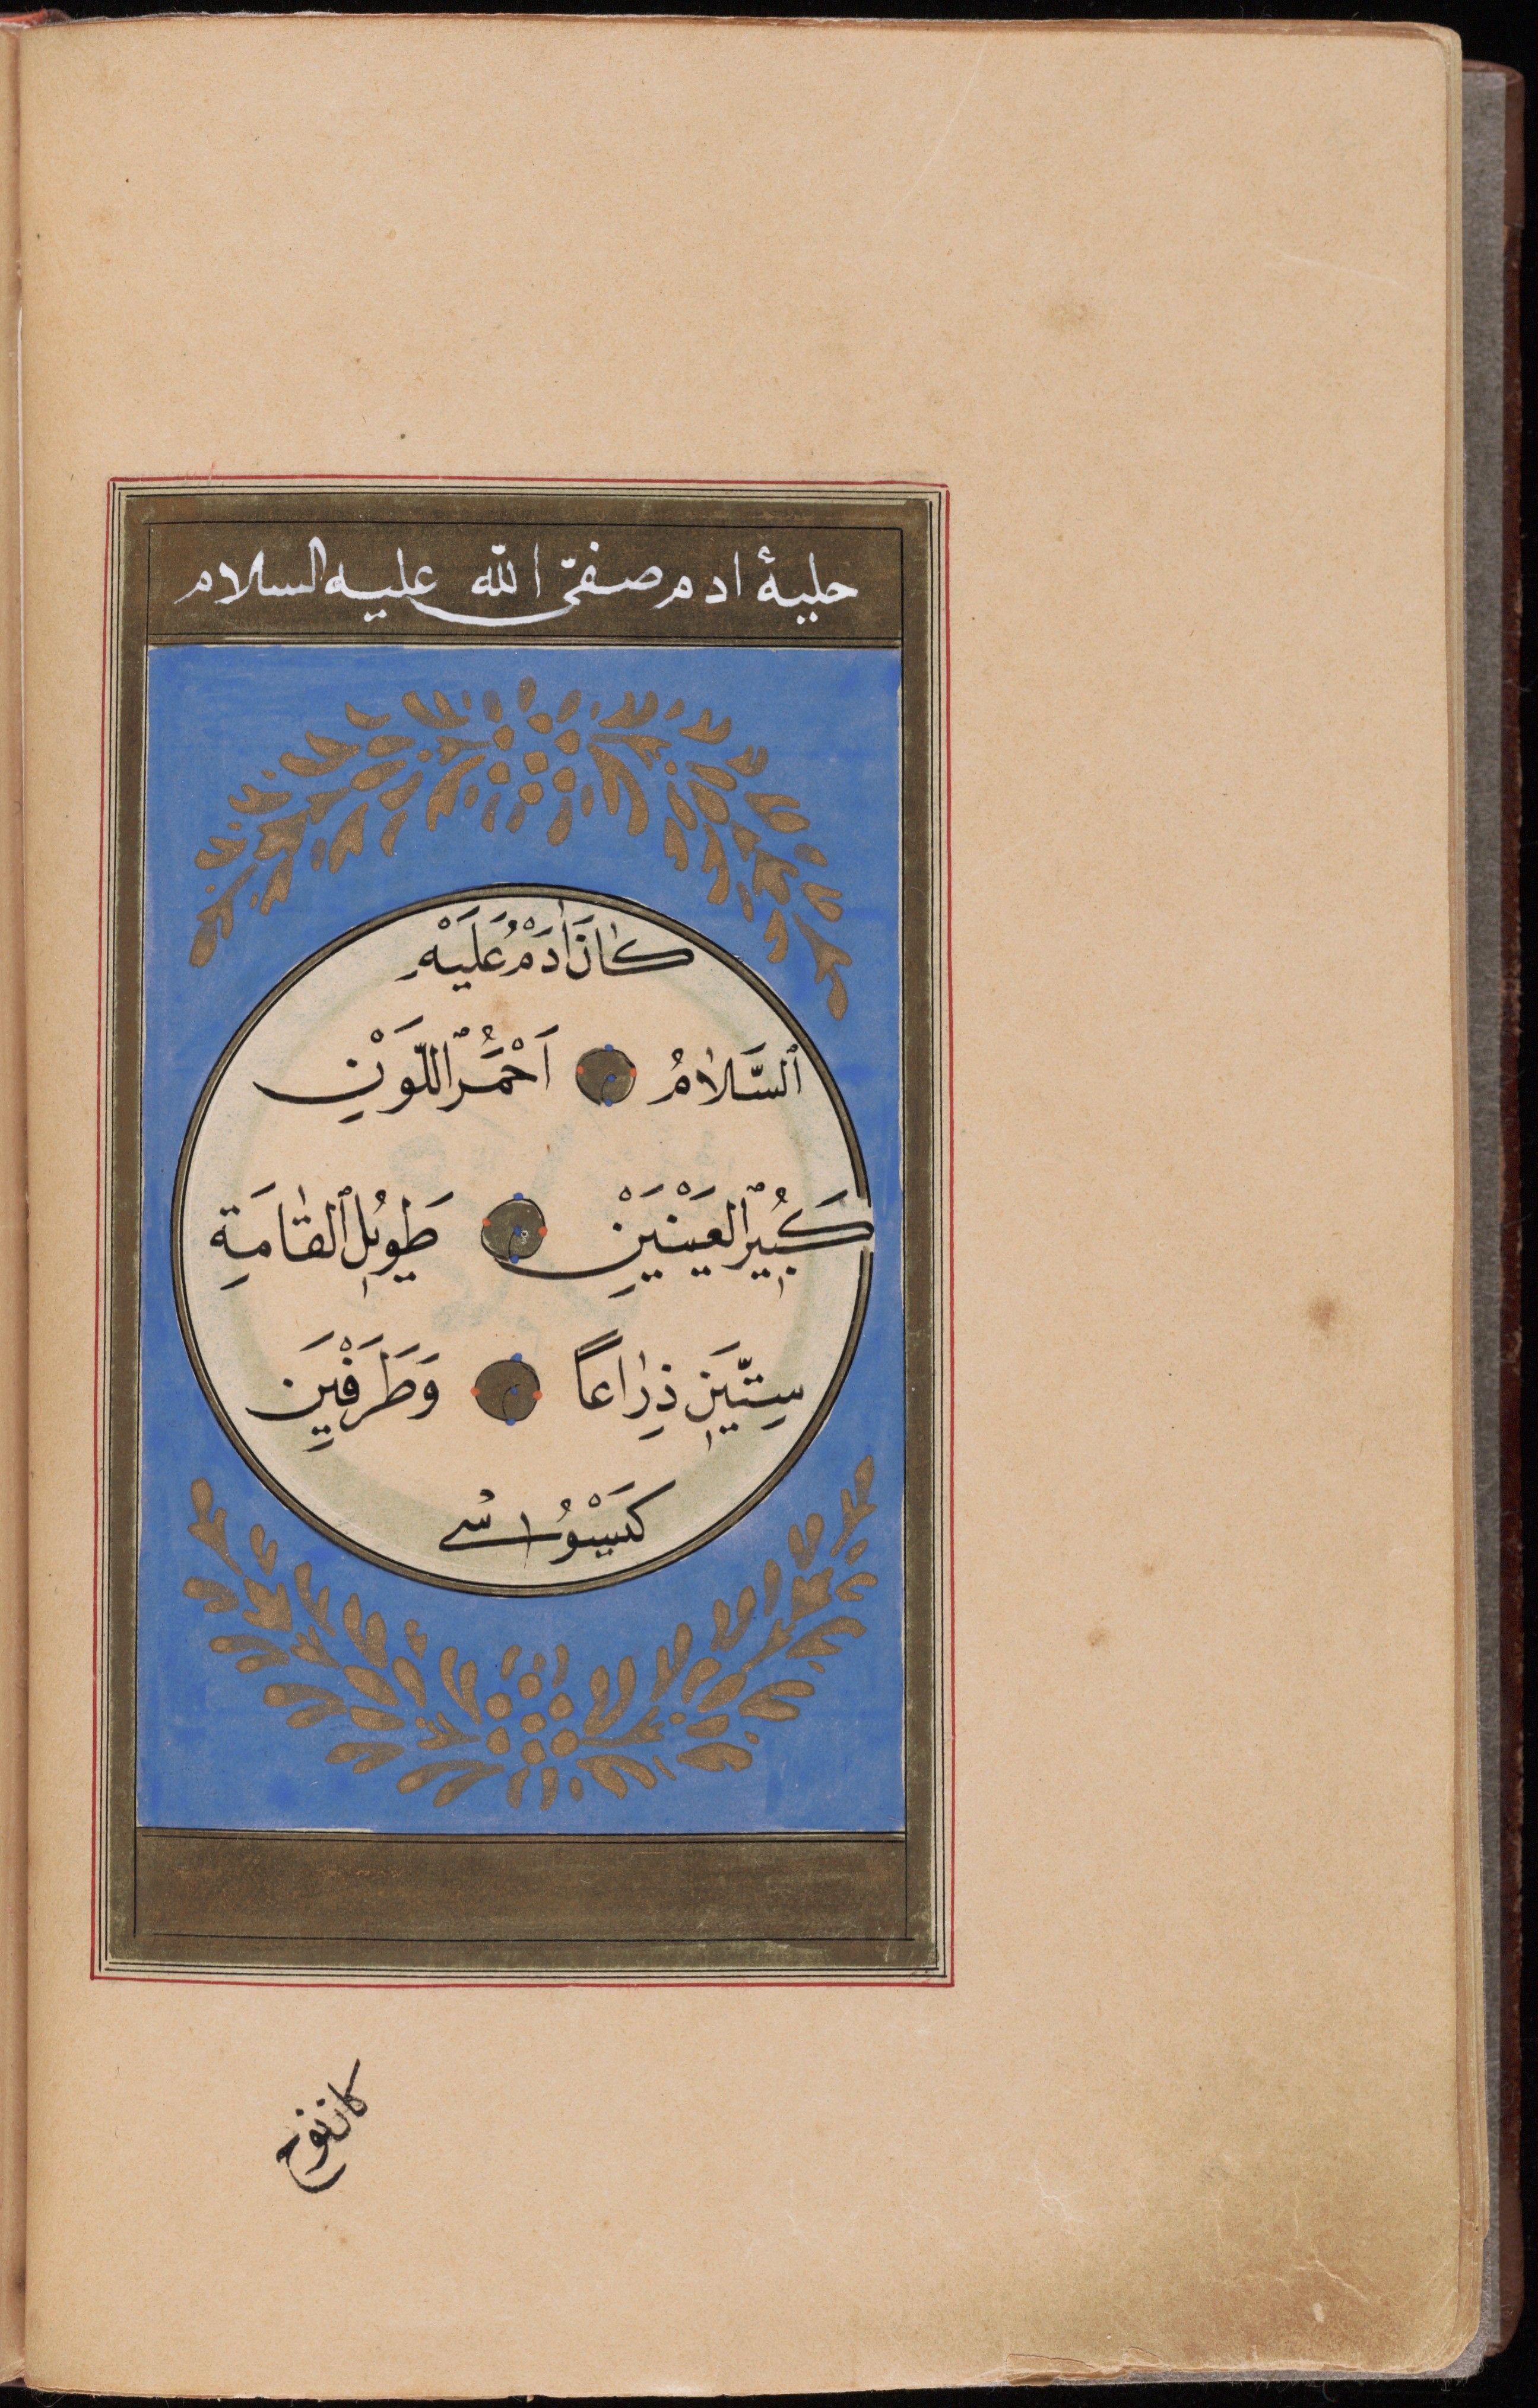 حلیهٔ ادم صفیّ اللّه علیه السلام
كَانَ اٰدَمُ عَلَيْهِ
ٱلسَّلَامُ اَحْمَرُ ٱللَّوْنِ
كَبِيرُ ٱلْعَيْنَيْنِ طَوِيلُ ٱلْقَامَةِ
سِتِّينَ ذِرَاعًا وَطَرَفَيْنِ
كان نوح